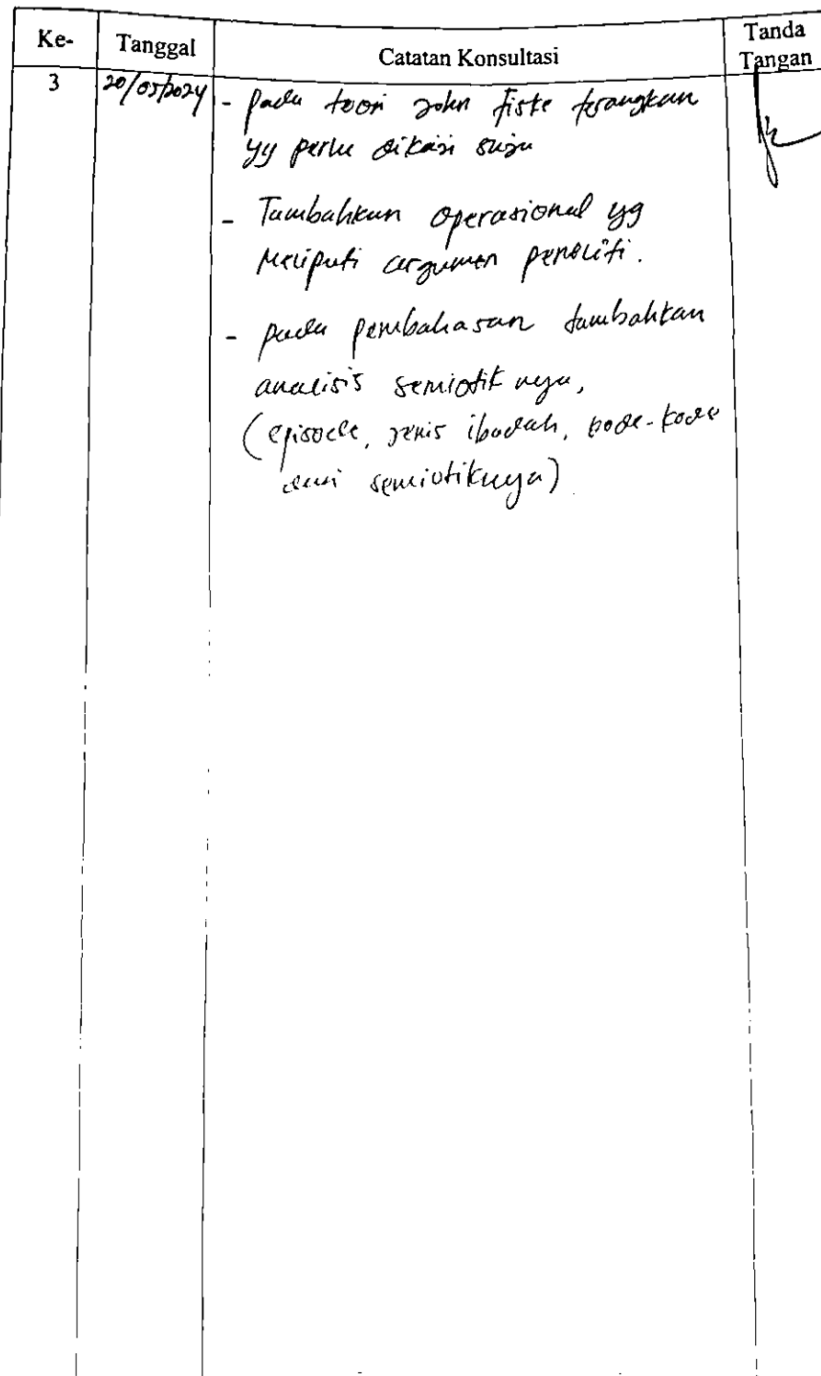 Ke- Tanggal Catatan Konsultasi Tanda Tangan
3 20/05/2024 - pada teori John Fiske terangkan
yg perlu dikaji saja
- Tambahkan operasional yg
meliputi argumen peneliti.
- pada pembahasan tambahkan
analisis semiotiknya,
(episode, jenis ibadah, kode-kode
dari semiotiknya)